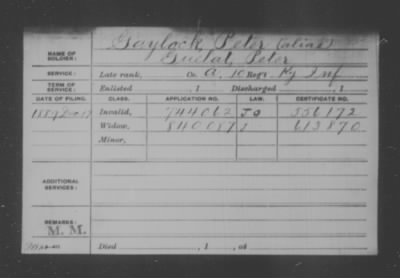 Gaylock, Peter (alias)
NAME OF SOLDIER: Guelat, Peter
SERVICE: Late rank, Co. A, 10 Reg't Ky Inf
TERM OF SERVICE: Enlisted , 1 Discharged , 1
DATE OF FILING. CLASS. APPLICATION NO. LAW. CERTIFICATE NO.
Invalid, 744062 556172
Widow, 840089 613870
Minor,
ADDITIONAL SERVICES:
REMARKS:
M. M.
Died , 1 , at